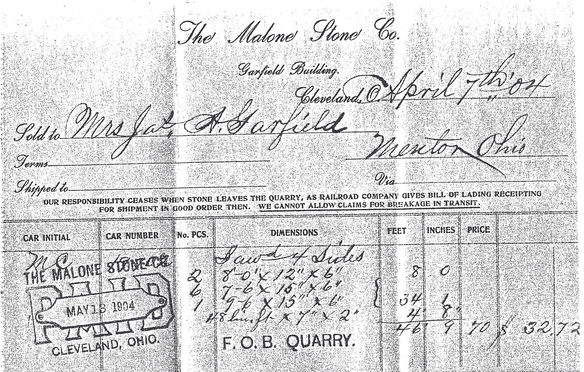 The Malone Stone Co.
Garfield Building.
Cleveland, O. April 7th '04
Sold to Mrs Jas. A. Garfield
Mentor Ohio
Terms
Shipped to Via
OUR RESPONSIBILITY CEASES WHEN STONE LEAVES THE QUARRY, AS RAILROAD COMPANY GIVES BILL OF LADING RECEIPTING
FOR SHIPMENT IN GOOD ORDER THEN. WE CANNOT ALLOW CLAIMS FOR BREAKAGE IN TRANSIT.
CAR INITIAL CAR NUMBER No. PCS. DIMENSIONS FEET INCHES PRICE
M.C. Sawd 4 Sides
THE MALONE STONE CO. 2 8'-0" x 12" x 6" 8 0
6 7-6 x 15" x 6"
MAY 13 1904 1 9-6 x 15" x 6" 34 1
48 lin. ft x 7" x 2" 4' 8"
46 9 70 $ 32.72
CLEVELAND, OHIO. F. O. B. QUARRY.